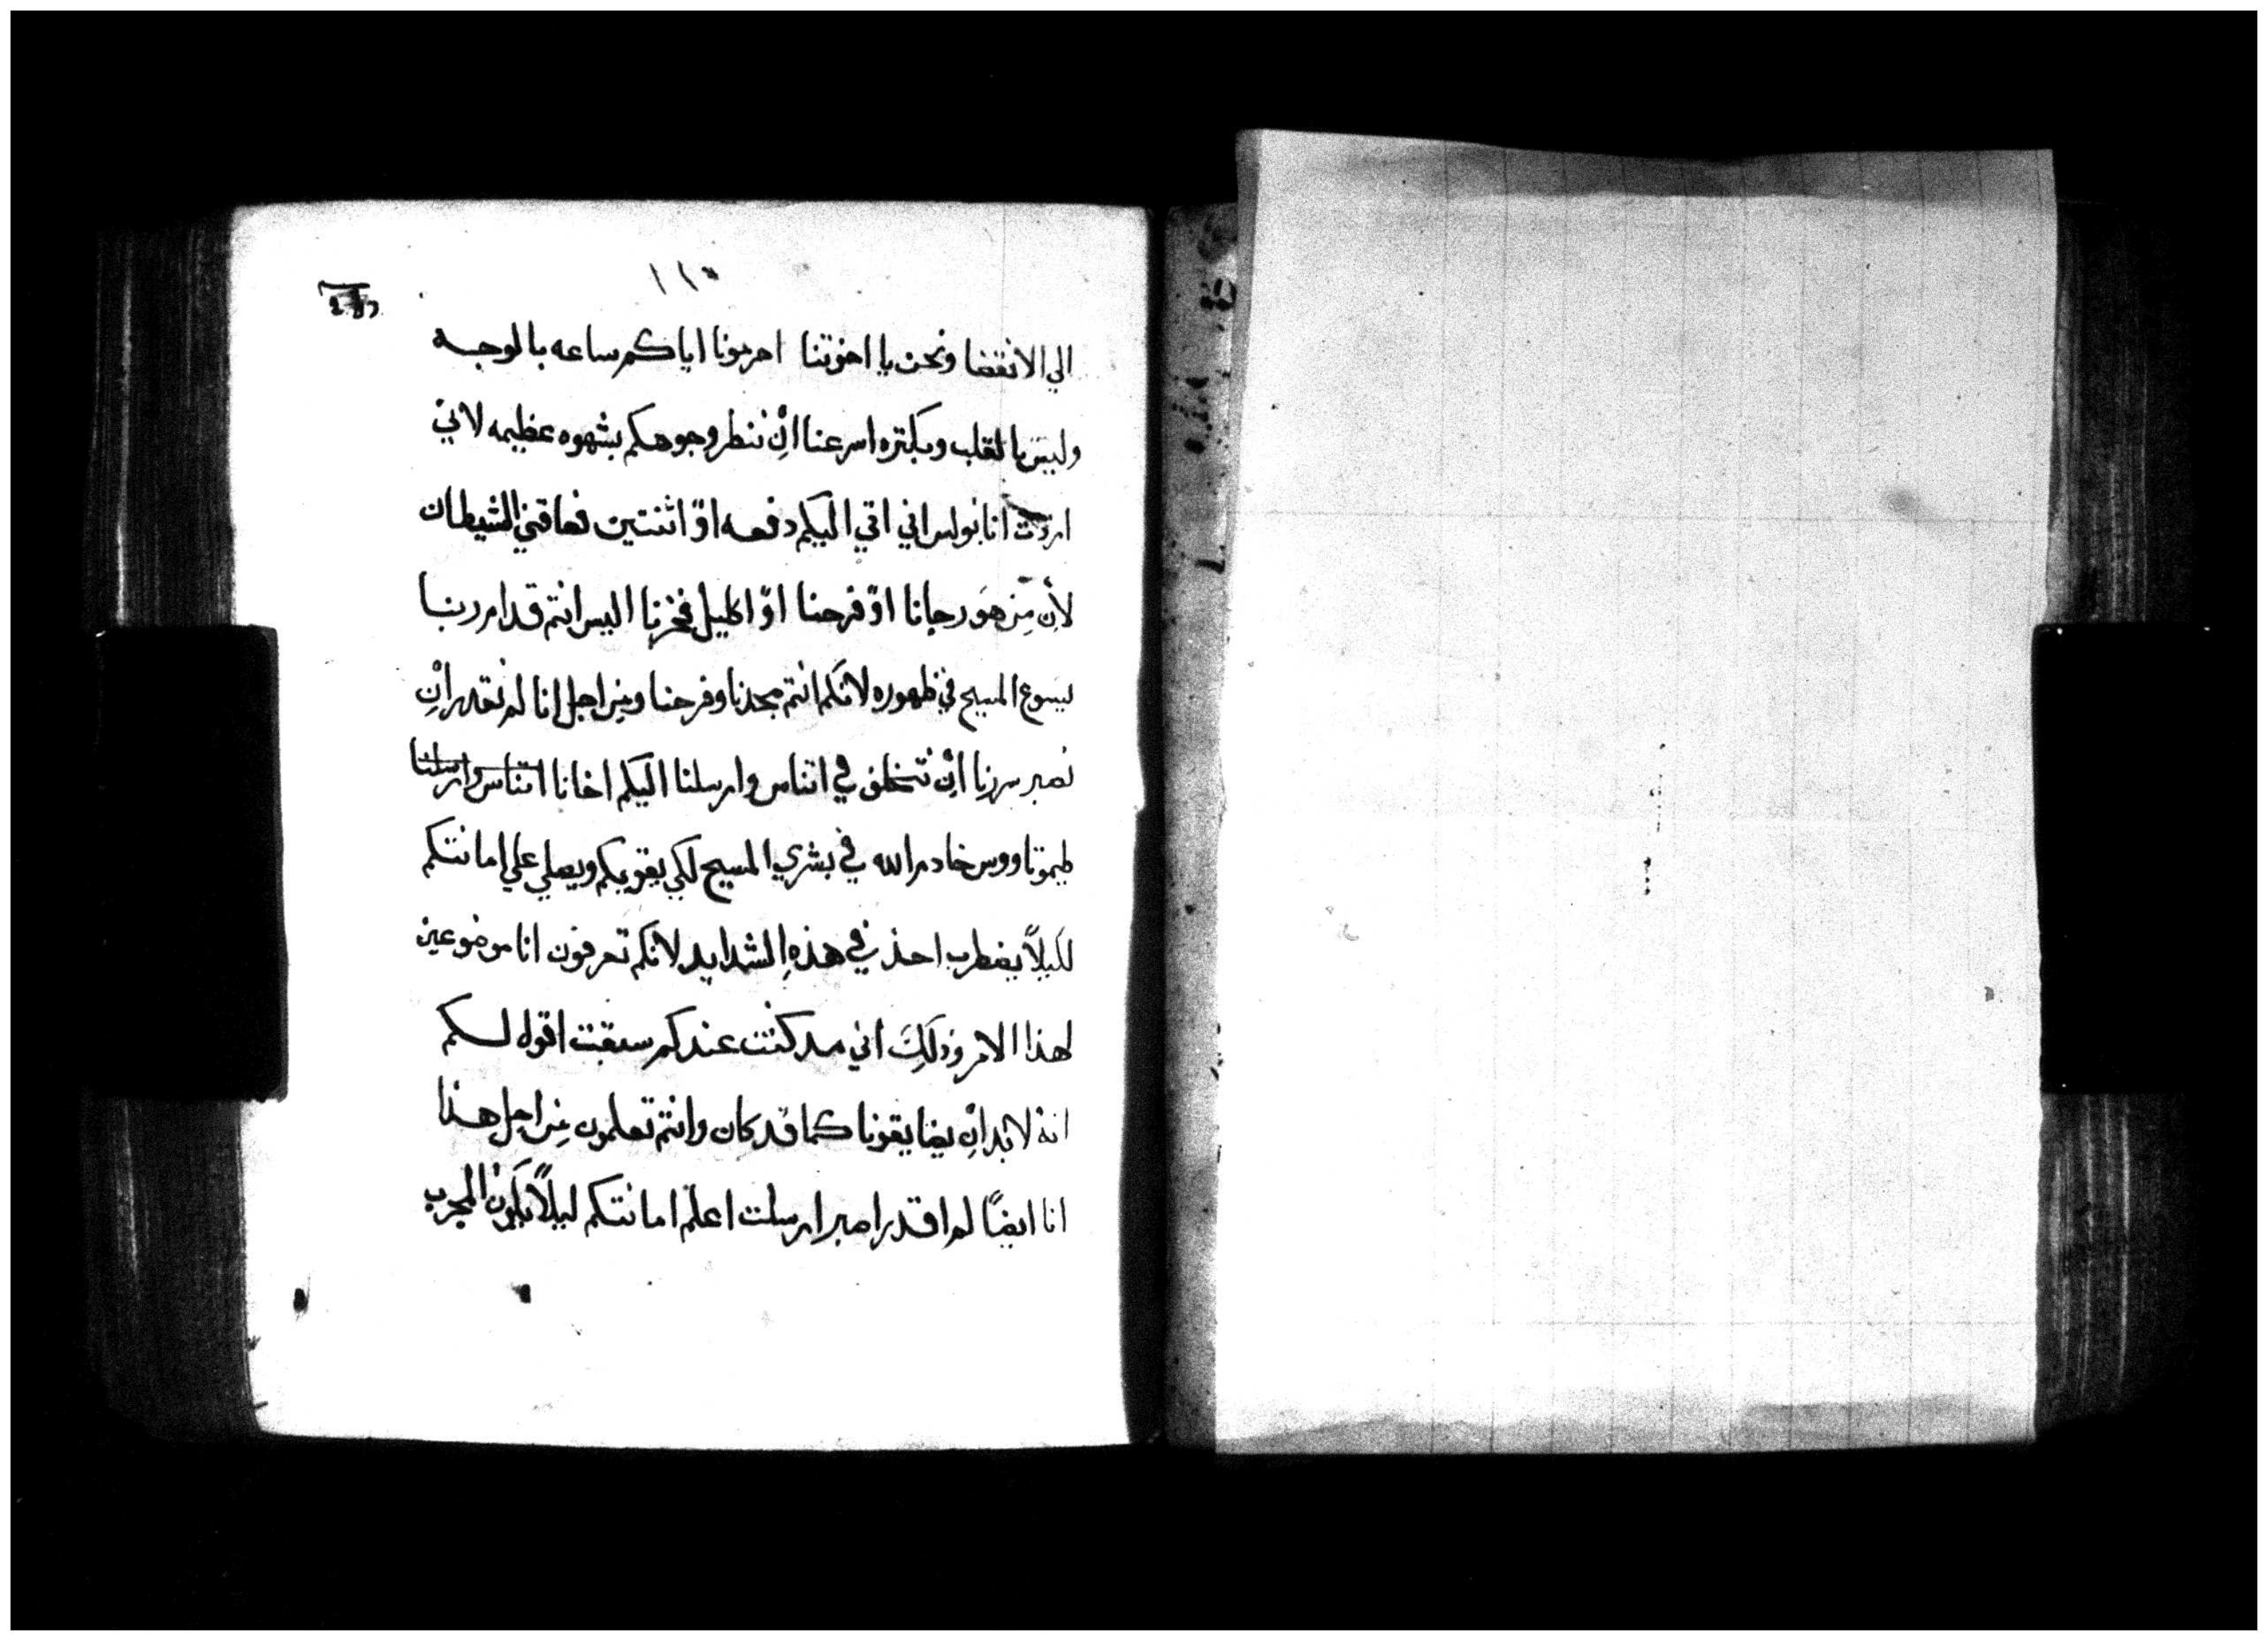 ١١٥
الي الانقضا ونحن يا اخوتنا احرمونا اياكم ساعه بالوجه
وليس بالقلب وبكتره اسرعنا ان ننظر وجوهكم بشهوه عظيمه لاني
اردت انا بولس اني اتي اليكم دفعه او اثنتين فعاقني الشيطان
لأن من هو رجانا او فرحنا او اكليل فخرنا اليس انتم قدام ربنا
يسوع المسيح في ظهوره لانكم انتم مجدنا وفرحنا ومن اجل انا لم نقدر ان
نصبر سرنا ان نتخلف في اتناس وارسلنا اليكم اخانا اتناس وارسلنا
طيموتاووس خادم الله في بشري المسيح لكي يقويكم ويصلي علي امانتكم
لكيلاً يضطرب احد في هذه الشدايد لانكم تعرفون انا موضوعين
لهذا الامر وذلك اني مد كنت عندكم سبقت اقول لكم
انه لابد ان يضايقونا كما قد كان وانتم تعلمون من اجل هذا
انا ايضاً لم اقدر اصبر ارسلت اعلم امانتكم ليلاً يكون المجرب